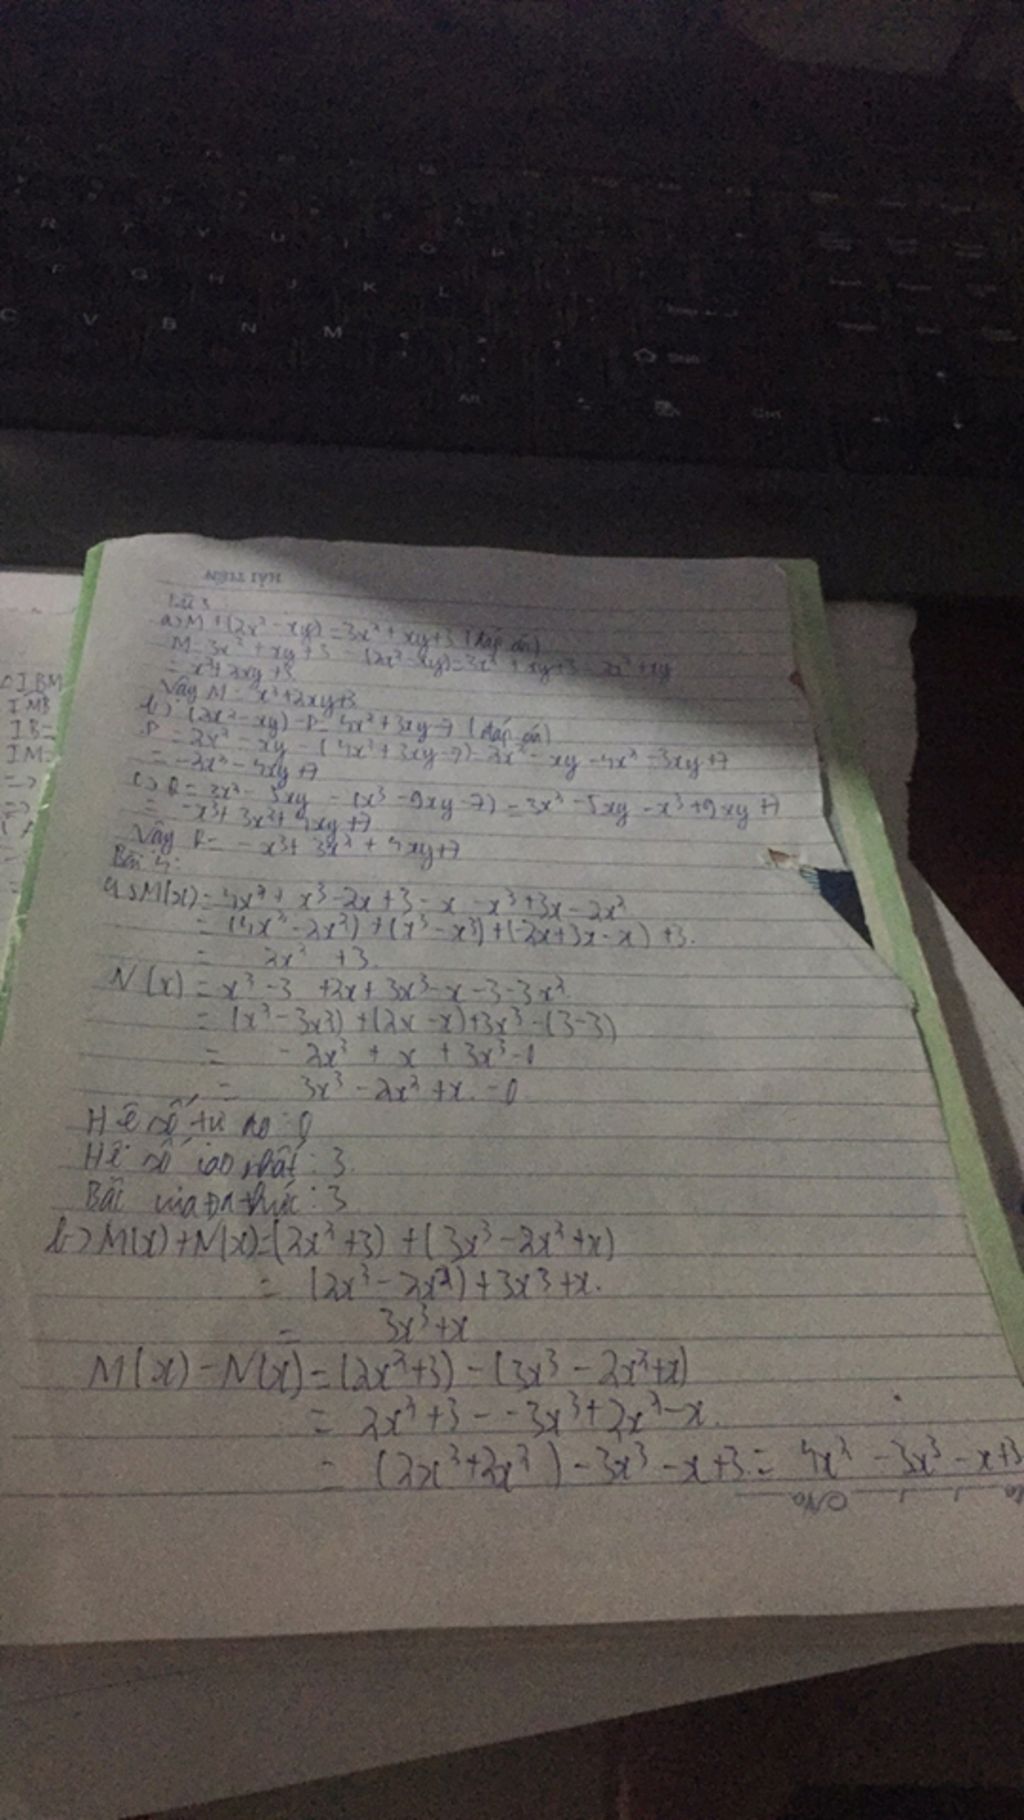 a> M + (2x² - xy) = 3x² + xy + 3 (đáp án)
M = 3x² + xy + 3 - (2x² - xy) = 3x² + xy + 3 - 2x² + xy
= x² + 2xy + 3
Vậy M = x² + 2xy + 3
b> (2x² - xy) - P = 4x² + 3xy - 7 (đáp án)
P = 2x² - xy - (4x² + 3xy - 7) = 2x² - xy - 4x² - 3xy + 7
= -2x² - 4xy + 7
c> R = 3x² - 5xy - (x³ - 9xy - 7) = 3x² - 5xy - x³ + 9xy + 7
= -x³ + 3x² + 4xy + 7
Vậy R = -x³ + 3x² + 4xy + 7
Bài 4:
a> M(x) = 4x² + x³ - 2x + 3 - x - x³ + 3x - 2x²
= (4x² - 2x²) + (x³ - x³) + (-2x + 3x - x) + 3.
= 2x² + 3.
N(x) = x² - 3 + 2x + 3x³ - x - 3 - 3x²
= (x² - 3x²) + (2x - x) + 3x³ - (3 - 3)
= -2x² + x + 3x³ - 0
= 3x³ - 2x² + x - 0
Hệ số tự do: 0
Hệ số cao nhất: 3.
Bậc của đa thức: 3
b> M(x) + N(x) = (2x² + 3) + (3x³ - 2x² + x)
= (2x² - 2x²) + 3x³ + x.
= 3x³ + x
M(x) - N(x) = (2x² + 3) - (3x³ - 2x² + x)
= 2x² + 3 - - 3x³ + 2x² - x.
= (2x² + 2x²) - 3x³ - x + 3 = 4x² - 3x³ - x + 3
C V B N M
IBM
IMB
IB=
IM=
=>